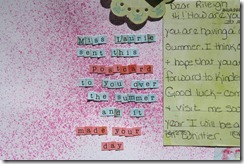 Miss Laurie
sent this
postcard
to you over
the summer
and it
made your
day
Dear Rileigh
Hi! How are you
you are having a
Summer. I think
hope that you
forward to kinde
Good luck - com
visit me so
Year I will be a